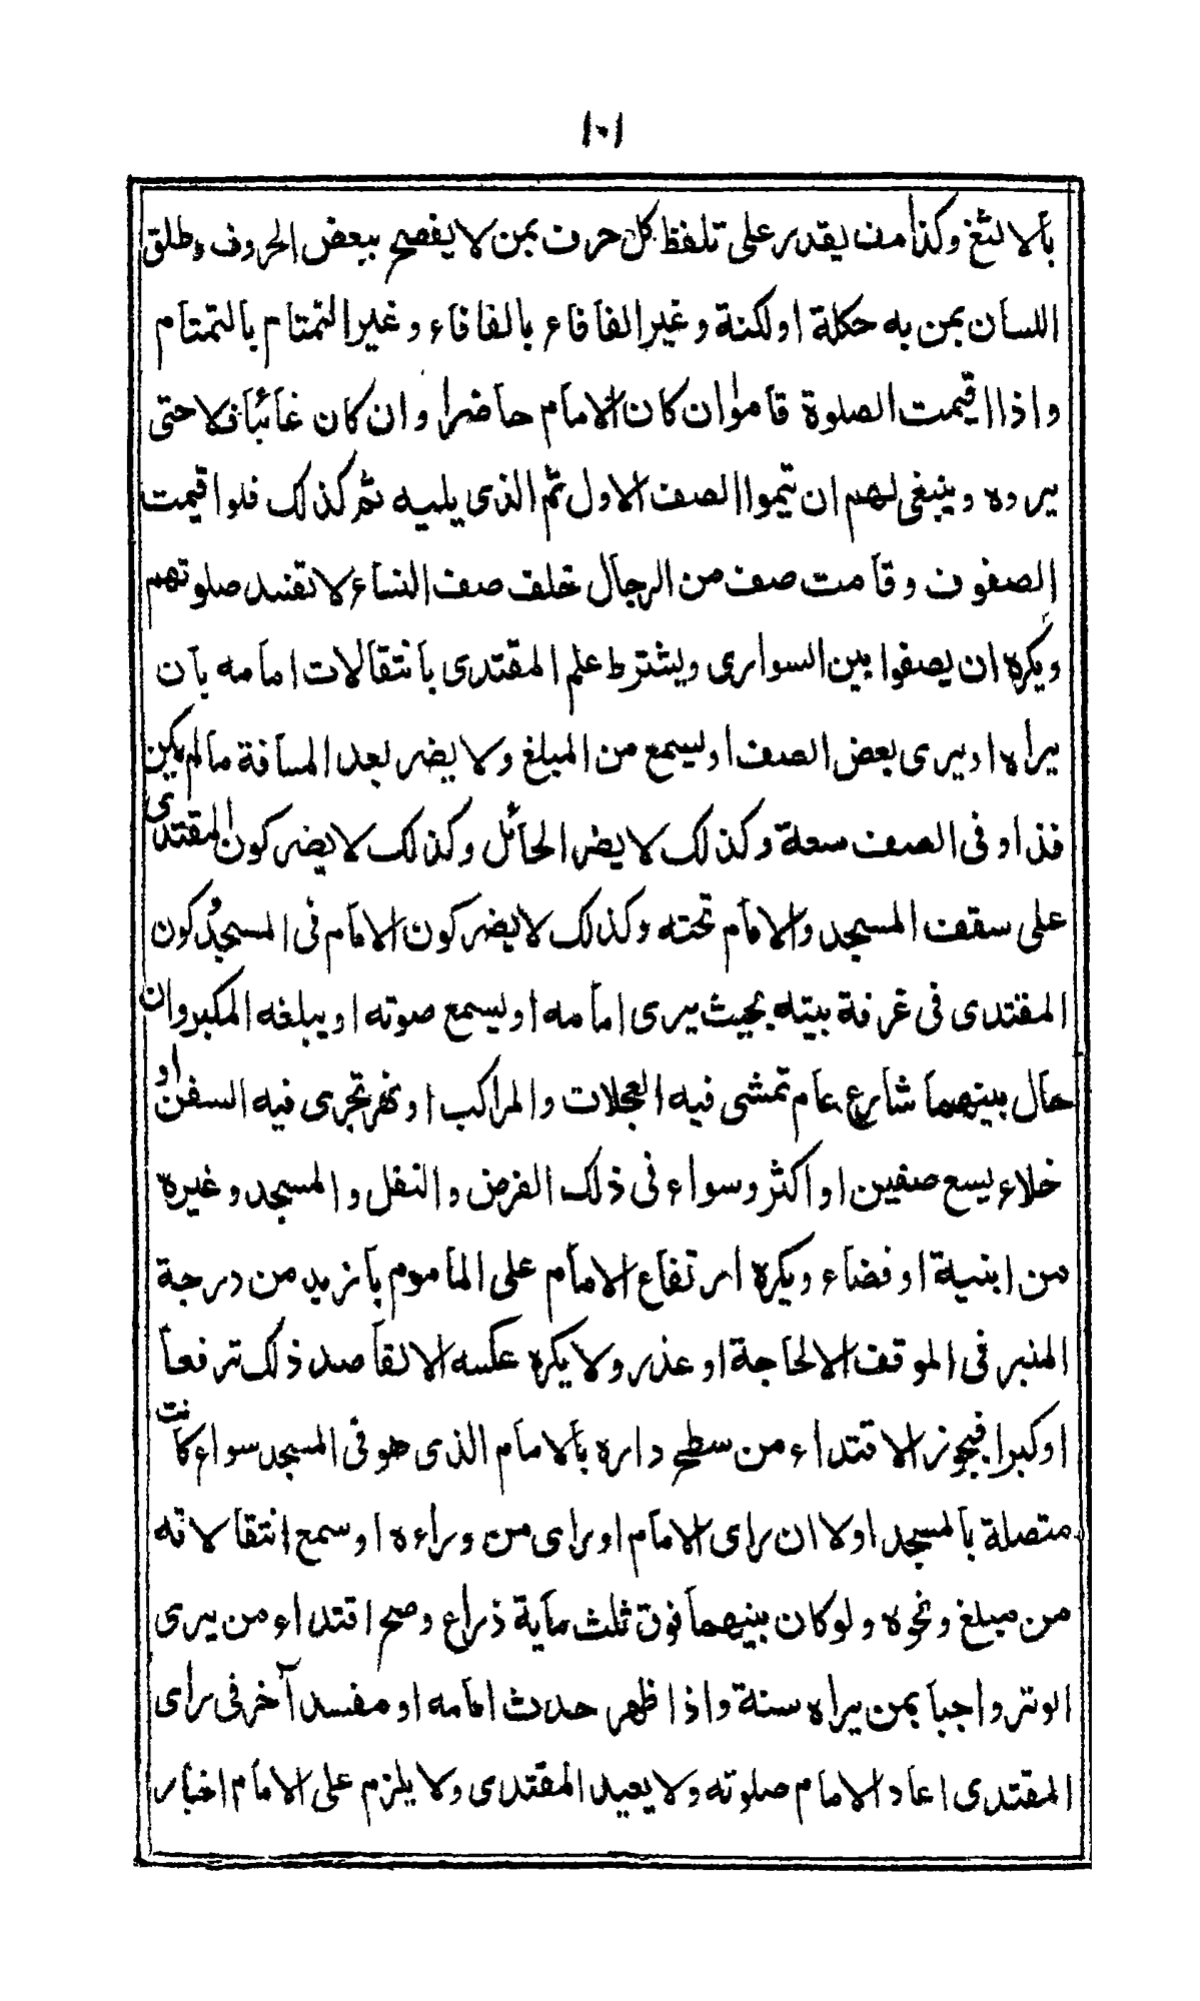 ١٠١
بالالثغ وكذا من يقدر على تلفظ كل حرف بمن لا يفصح ببعض الحروف وطلق
اللسان بمن به حكلة اولكنة وغير الفافاء بالفافاء وغير التمتام بالتمتام
واذا اقيمت الصلوة قاموا ان كان الامام حاضرا وان كان غائبا فلا حتى
يروه وينبغى لهم ان يتموا الصف الاول ثم الذى يليه ثم كذلك فلو اقيمت
الصفوف وقامت صف من الرجال خلف صف النساء لا تفسد صلوتهم
ويكره ان يصفوا بين السوارى ويشترط علم المقتدى بانتقالات امامه بان
يراه او يرى بعض الصف او يسمع من المبلغ ولا يضر بعد المسافة مالم يكن
فذا وفى الصف سعة وكذلك لا يضر الحائل وكذلك لا يضر كون المقتدى
على سقف المسجد والامام تحته وكذلك لا يضر كون الامام فى المسجد وكون
المقتدى فى غرفة بيته بحيث يرى امامه او يسمع صوته او يبلغه المكبر وان
حال بينهما شارع عام تمشى فيه العجلات والمراكب او نهر تجرى فيه السفن او
خلاء يسع صفين او اكثر وسواء فى ذلك الفرض والنفل والمسجد وغيره
من ابنية او فضاء ويكره ارتفاع الامام على الماموم بازيد من درجة
المنبر فى الموقف الا لحاجة او عذر ولا يكره عكسه الا لقاصد ذلك ترفعا
او كبرا فيجوز الاقتداء من سطح داره بالامام الذى هو فى المسجد سواء كانت
متصلة بالمسجد اولا ان راى الامام او راى من وراءه او سمع انتقالاته
من مبلغ ونحوه ولو كان بينهما فوق ثلث ماية ذراع وصح اقتداء من يرى
الوتر واجبا بمن يراه سنة واذا ظهر حدث امامه او مفسد آخر فى راى
المقتدى اعاد الامام صلوته ولا يعيد المقتدى ولا يلزم على الامام اخبار